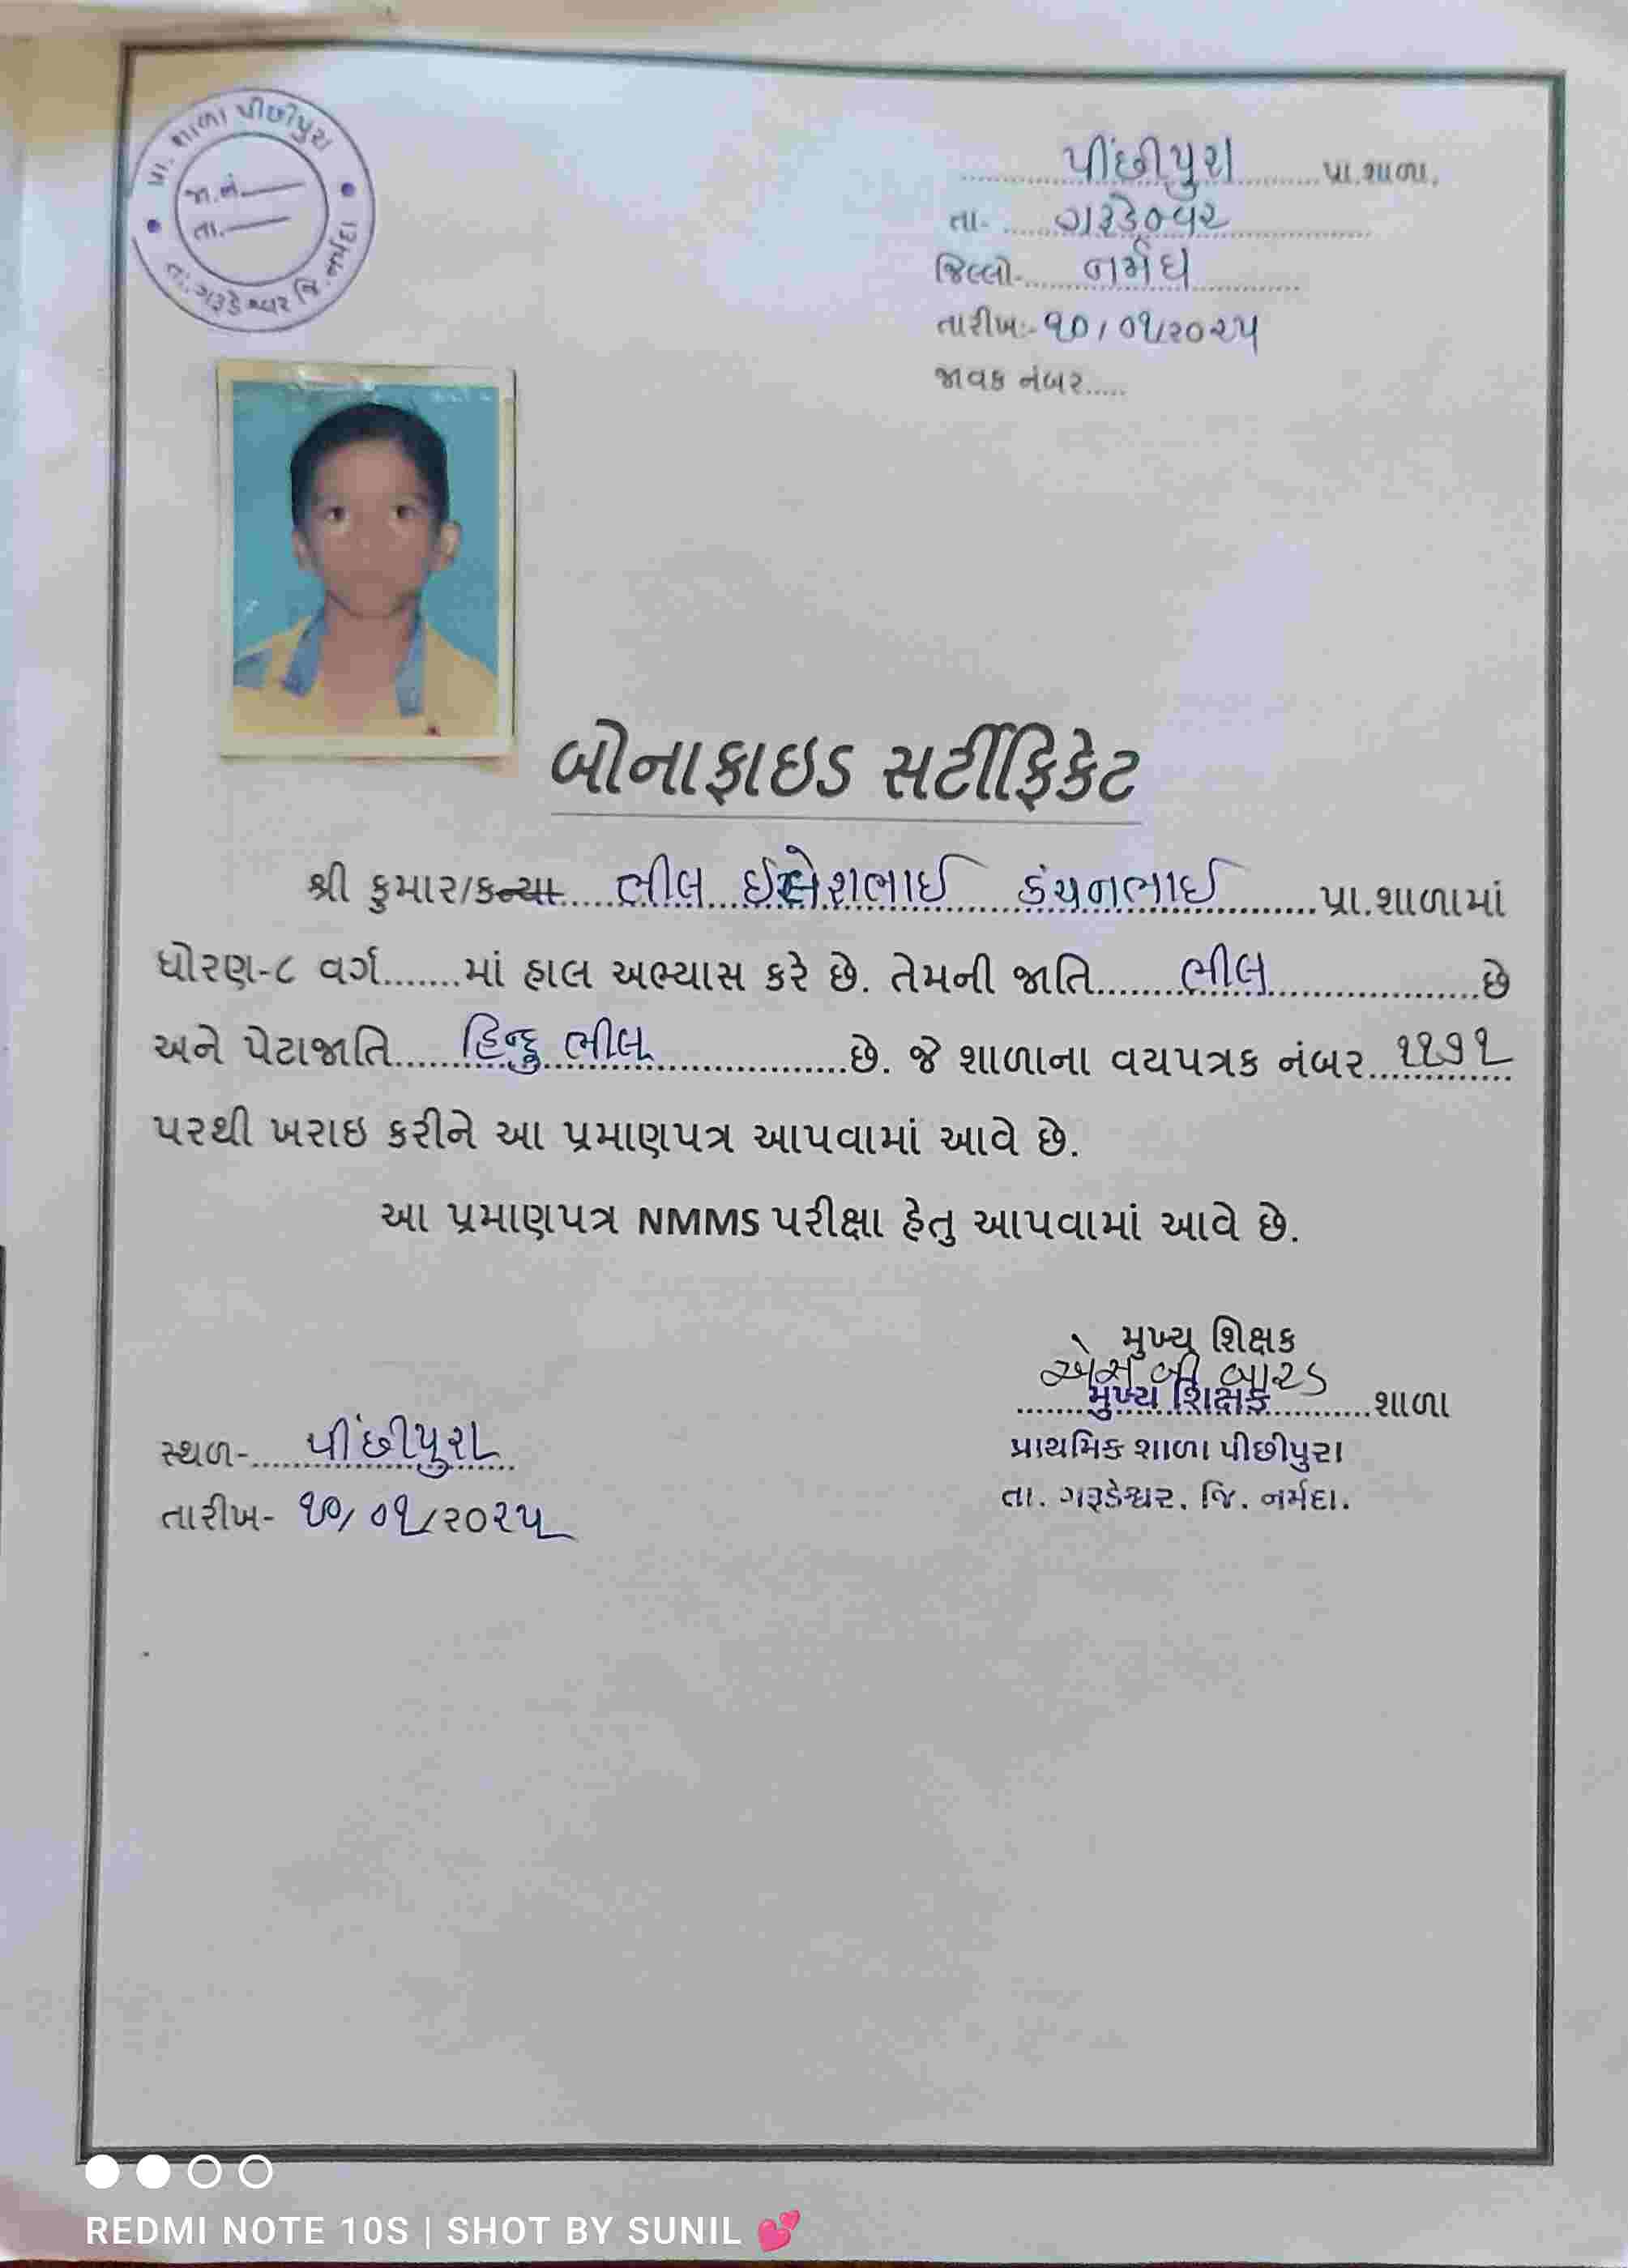 પ્રા. શાળા પીછીપુરા
જા.નં.
તા.
તા. ગરૂડેશ્વર જિ. નર્મદા
પીંછીપુરા પ્રા.શાળા.
તા- ગરૂડેશ્વર
જિલ્લો- નર્મદા
તારીખ:- ૧૦/૦૧/૨૦૨૫
જાવક નંબર.....
બોનાફાઇડ સર્ટીફિકેટ
શ્રી કુમાર/કન્યા..... ભીલ કંચનભાઈ ..........પ્રા.શાળામાં
ધોરણ-૮ વર્ગ.......માં હાલ અભ્યાસ કરે છે. તેમની જાતિ.......ભીલ....................છે
અને પેટાજાતિ.....હિન્દુ ભીલ..................છે. જે શાળાના વયપત્રક નંબર..૧૧૭૧
પરથી ખરાઇ કરીને આ પ્રમાણપત્ર આપવામાં આવે છે.
આ પ્રમાણપત્ર NMMS પરીક્ષા હેતુ આપવામાં આવે છે.
મુખ્ય શિક્ષક
એસ બી બારડ
મુખ્ય શિક્ષક..........શાળા
પ્રાથમિક શાળા પીછીપુરા
તા. ગરૂડેશ્વર. જિ. નર્મદા.
સ્થળ-.....પીંછીપુરા
તારીખ- ૧૦/૦૧/૨૦૨૫
REDMI NOTE 10S | SHOT BY SUNIL 💕